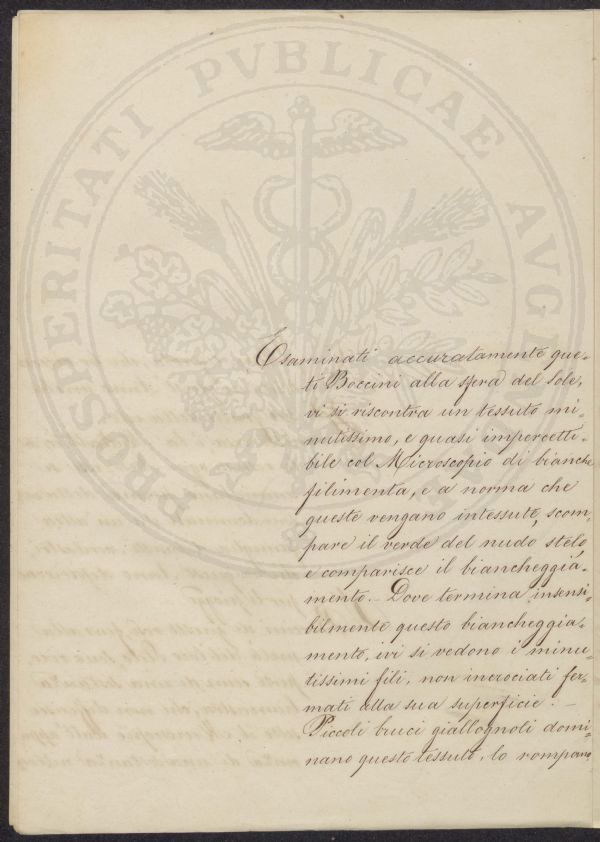 PROSPERITATI PVBLICAE AVGENDAE
Esaminati accuratamente que=
ti Boccini alla sfera del sole,
vi si riscontra un tessuto mi=
nutissimo, e quasi impercetti=
bile col Microscopio di bianche
filimenta, e a norma che
queste vengano intessute, scom=
pare il verde del nudo stelo,
e comparisce il biancheggia=
mento. - Dove termina insensi=
bilmente questo biancheggia=
mento, ivi si vedono i minu=
tissimi fili, non incrociati fer=
mati alla sua superficie. -
Piccoli bruci giallognoli domi=
nano questo tessuto, lo rompano